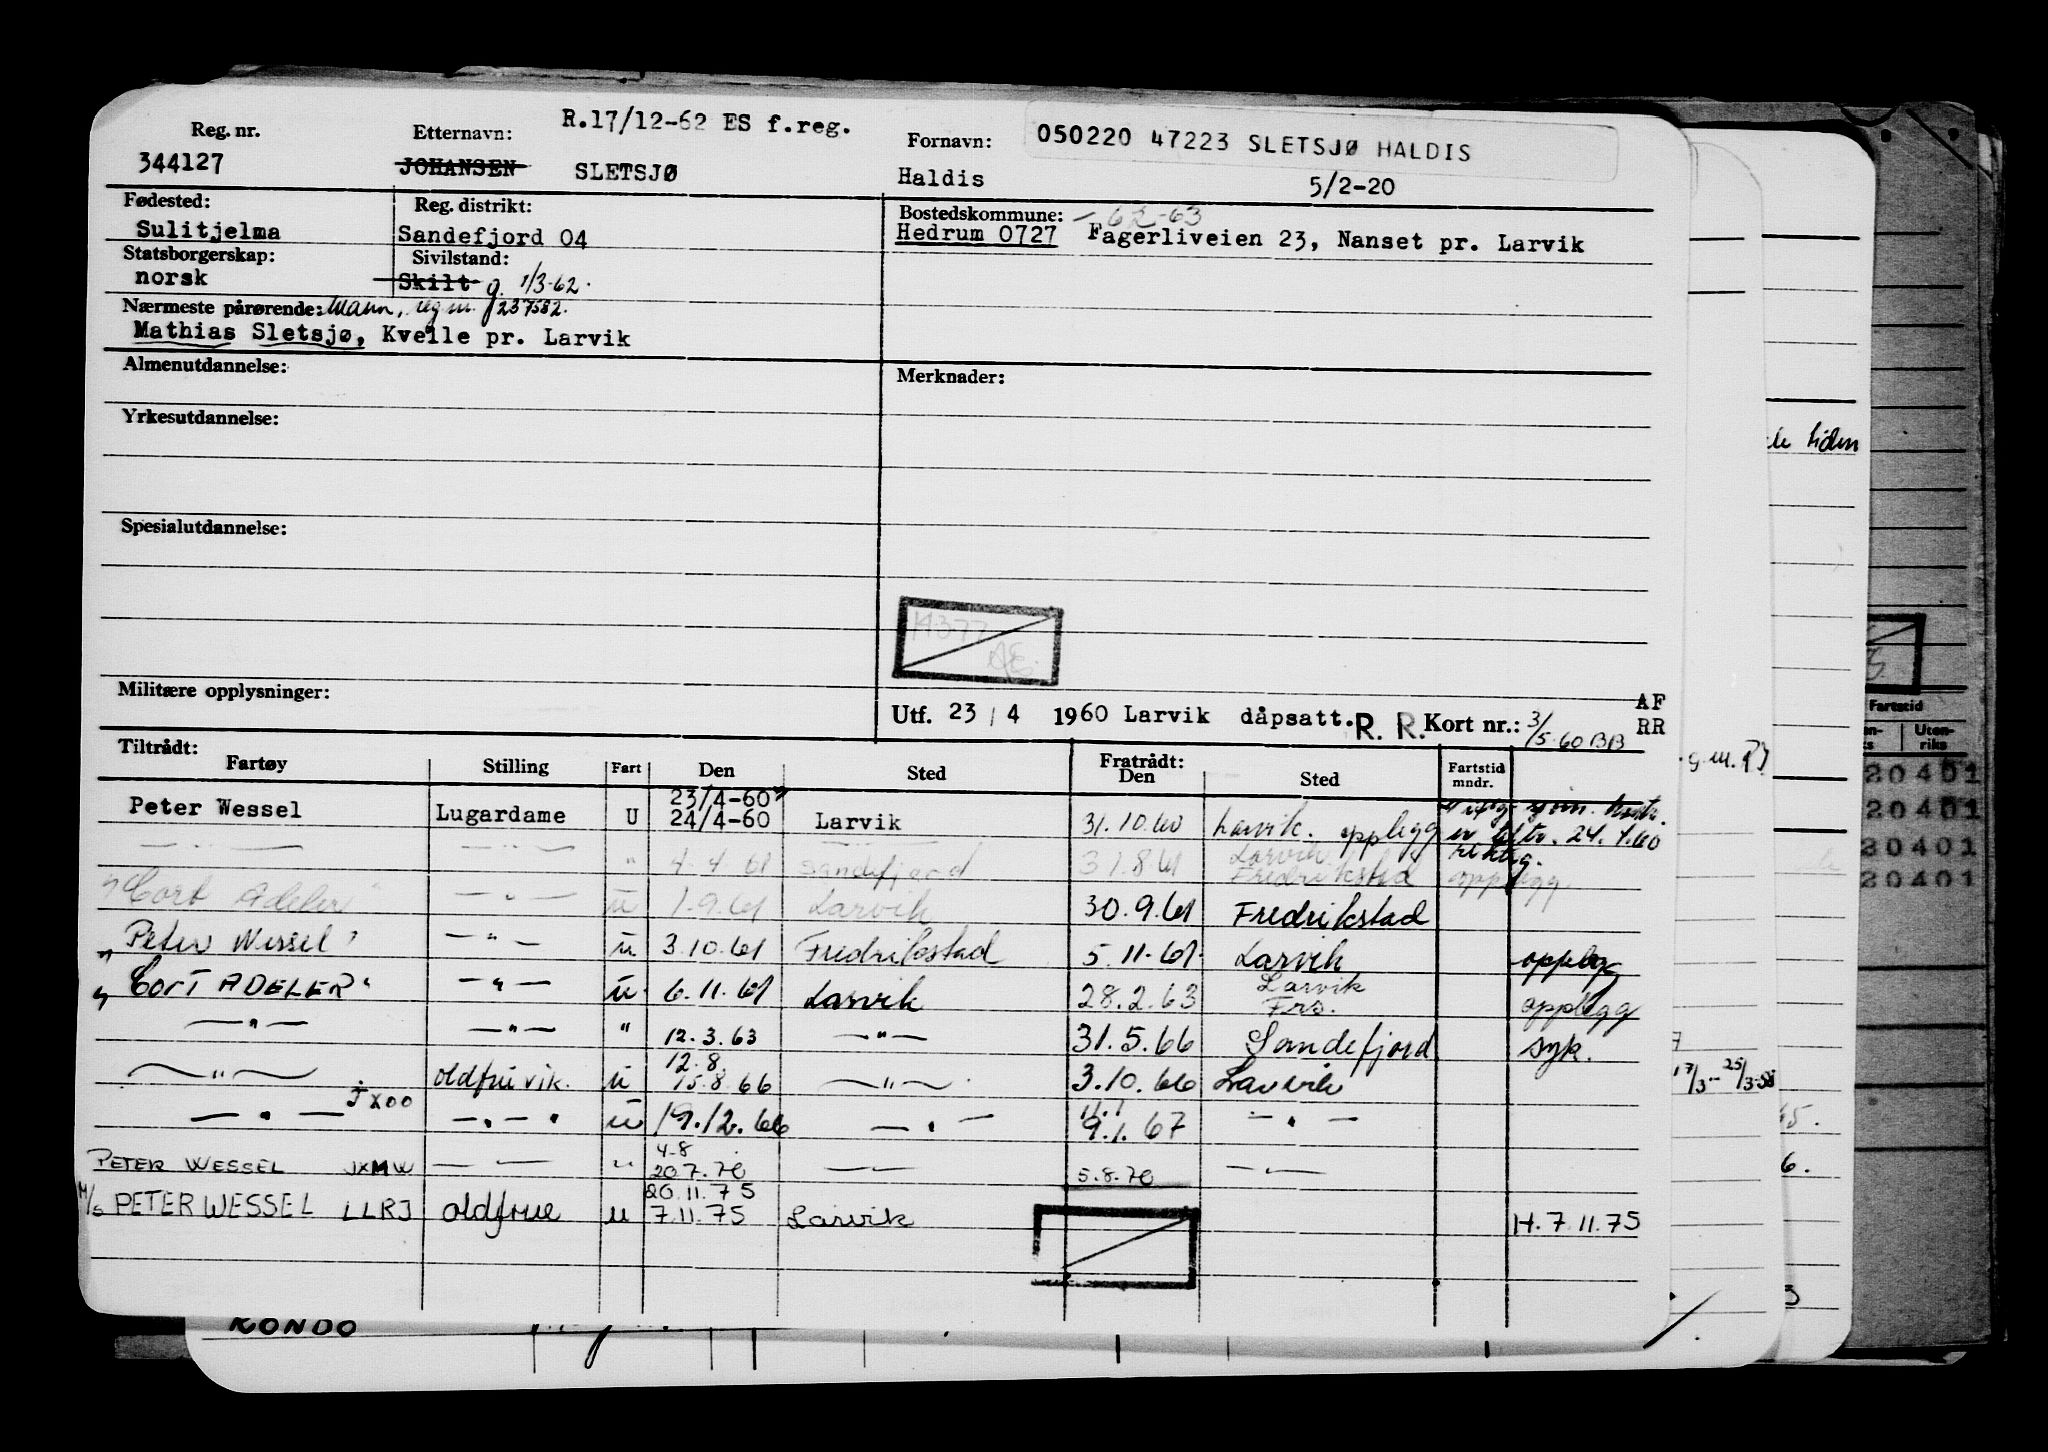 R.17/12-62 ES f.reg.
Reg. nr. Etternavn: Fornavn: 050220 47223 SLETSJØ HALDIS
344127 JOHANSEN SLETSJØ Haldis 5/2-20
Fødested: Reg. distrikt: Bostedskommune: - 62-63
Sulitjelma Sandefjord 04 Hedrum 0727 Fagerliveien 23, Nanset pr. Larvik
Statsborgerskap: Sivilstand:
norsk Skilt g. 1/3-62.
Nærmeste pårørende: Mann, reg.nr. 237582.
Mathias Sletsjø, Kvelle pr. Larvik
Almenutdannelse: Merknader:
Yrkesutdannelse:
Spesialutdannelse:
14377
Militære opplysninger: AF
Utf. 23 / 4 1960 Larvik dåpsatt. R. R. Kort nr.: 3/5-60 BB RR
Tiltrådt: Fratrådt:
Fartøy Stilling Fart Den Sted Den Sted Fartstid mndr.
Peter Wessel Lugardame U 23/4-60 24/4-60 Larvik 31.10.60 Larvik. opplegg
er tiltr. 24.4.60
riktig.
— " — — " — " 4-4 61 Sandefjord 31.8.61 Larvik Fredrikstad opplegg
"Cort Adeler" — " — u 1.9.61 Larvik 30.9.61 Fredrikstad
"Peter Wessel" — " — u 3.10.61 Fredrikstad 5.11.61 Larvik opplegg
"Cort ADELER" — " — u 6.11.61 Larvik 28.2.63 Larvik Frs. opplegg
— " — — " — " 12.3.63 — " — 31.5.66 Sandefjord syk.
— " — oldfrue vik. u 12.8. 15.8.66 — " — 3.10.66 Larvik
— " — JXOO — " — u 19.12.66 — " — 9.1.67 — " —
PETER WESSEL JXMW — " — " 4-8 20.7.70 — " — 5.8.70 — " —
M/S PETER WESSEL LLRJ oldfrue u 20.11.75 7.11.75 Larvik H.7.11.75
RONDO
tiden
Fartstid
Uten-
riks
20401
20401
20401
20401
g.m.
17/3-25/3-58
6.